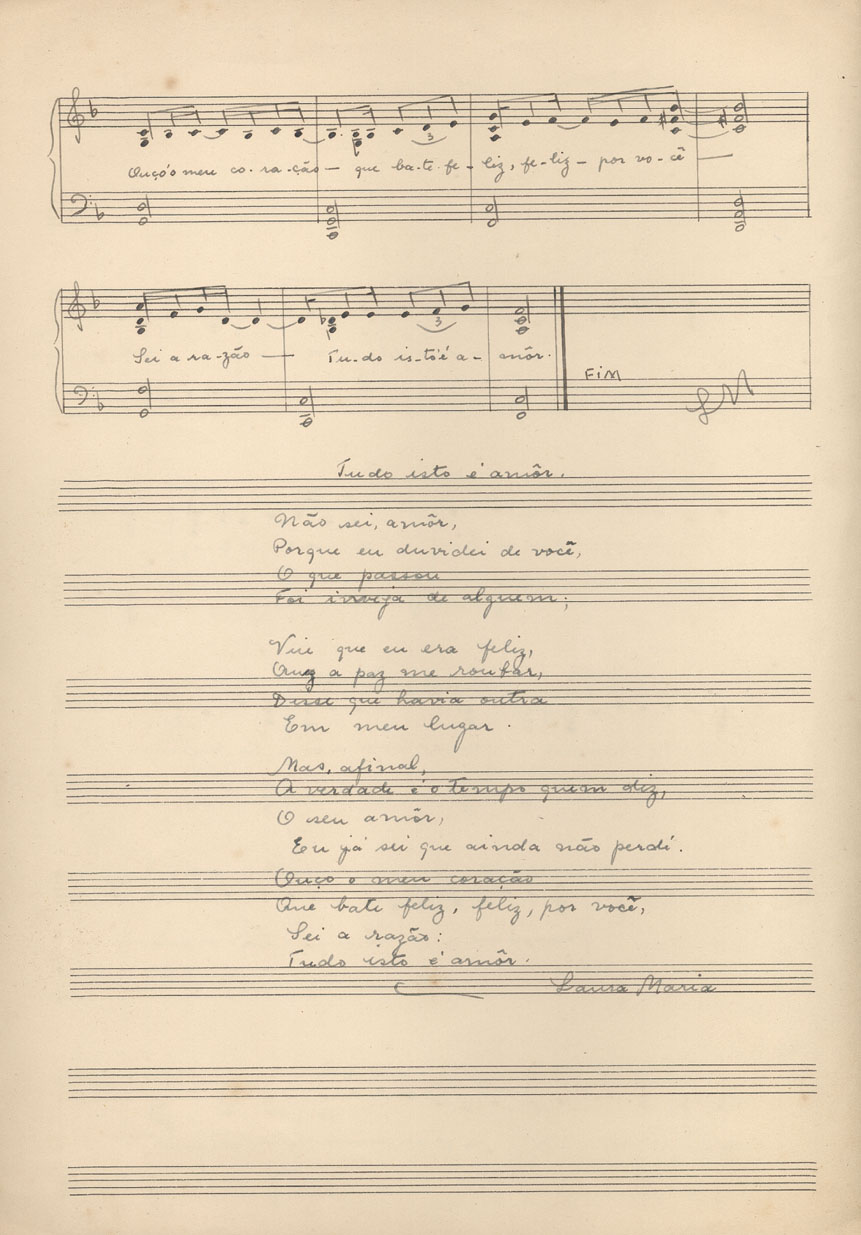 Ouço'o meu co-ra-ção — que ba-te fe-liz, fe-liz — por vo-cê —
3
Sei a ra-zão — Tu-do is-to'é a-môr.
3
FiM
LM
Tudo isto é amôr.
Não sei, amôr,
Porque eu duvidei de você,
O que passou
Foi inveja de alguem;
Viu que eu era feliz,
Quiz a paz me roubar,
Disse que havia outra
Em meu lugar.
Mas, afinal,
A verdade é o tempo quem diz,
O seu amôr,
Eu já sei que ainda não perdí.
Ouço o meu coração
Que bate feliz, feliz, por você,
Sei a razão:
Tudo isto é amôr.
Laura Maria